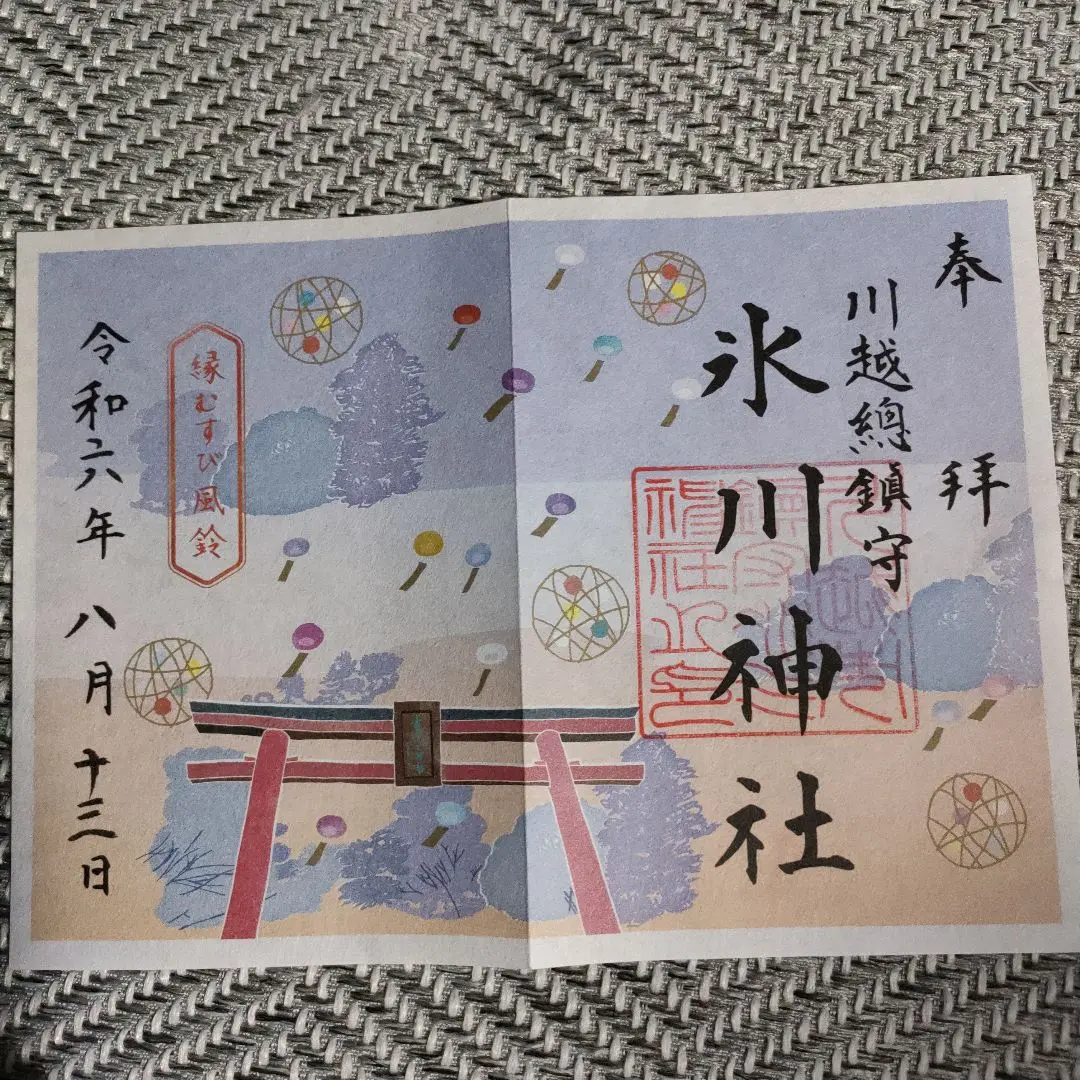 奉拝
川越總鎮守
氷川神社
縁むすび風鈴
令和六年八月十三日